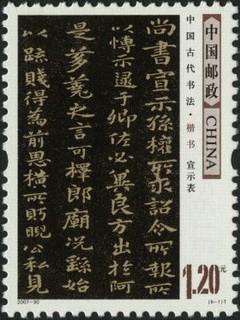 中国邮政 CHINA
中国古代书法·楷书 宣示表
尚書宣示孫權所求詔令所報所
以博示逮于卿佐必冀良方出於阿
是芻蕘之言可擇郎廟況繇始
以疏賤得為前恩橫所盱睨公私見
1.20元
2007-30
(6-1)T